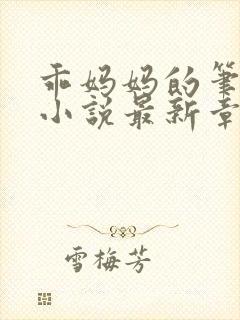 乖妈妈的筆
小說最新章
雪梅芳